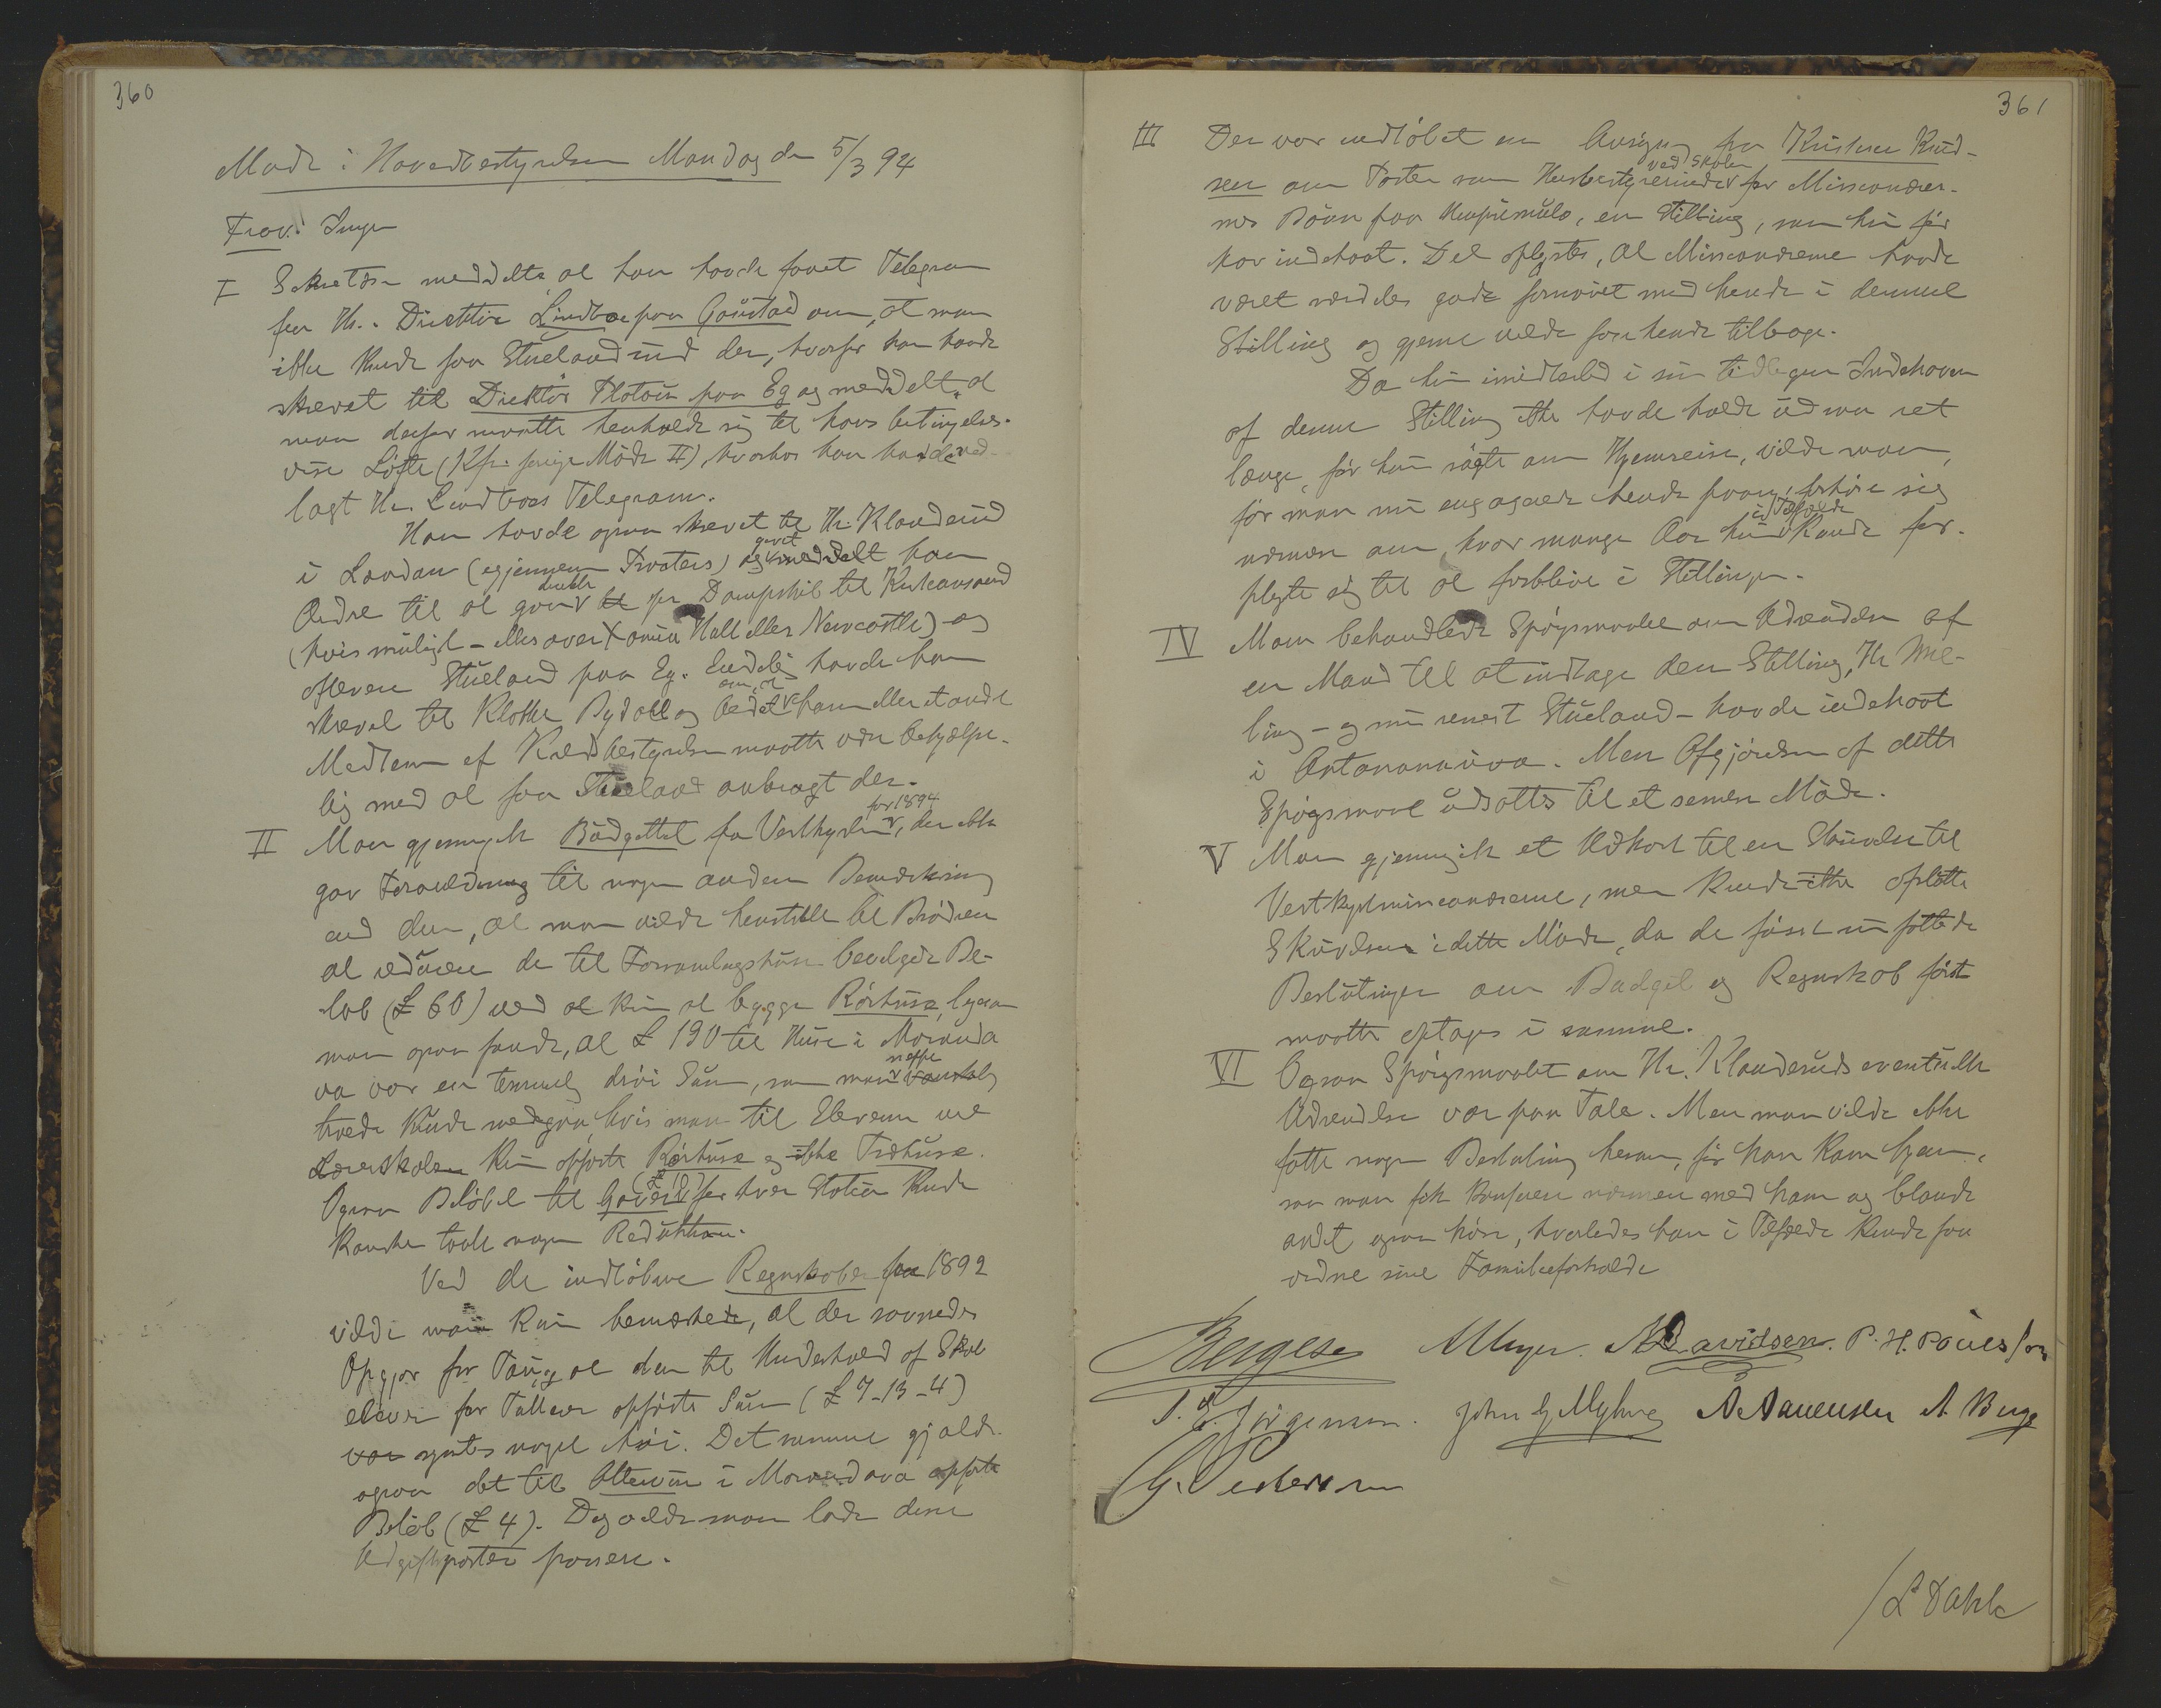 360
Møde i Hovedbestyrelsen Mandag den 5/3 94
Frav.: Ingen
I Sekretæren meddelte at han havde faaet Telegram
fra Hr. Direktör Lindboe paa Gaustad om, at man
ikke kunde faa Stueland ind der, hvorfor han havde
skrevet til Direktör Flotow paa Eg og meddelt, at
man derfor maatte henholde sig til hans betingelses-
vise Löfte (Kfr. forrige Möde II), hvorhos han havde ved-
lagt Hr. Lindboes Telegram.
Han havde ogsaa skrevet til Hr. Klanderud
i London (igjennem Procters) og givet ham
Ordre til at gaa direkte per Dampskib til Kristianssand
(hvis muligt - ellers over Hull eller Newcastle) og
aflevere Stueland paa Eg. Endelig havde han
skrevet til Klokker Rydall og bedet om, at han eller et andet
Medlem af Kredsbestyrelsen maatte være behjælpe-
lig med at faa Stueland anbragt der.
II Man gjennemgik Büdgettet fra Vestkysten for 1894, der ikke
gav Foranledning til nogen anden Bemærkning
end den, at man vilde henstille til Brödrene
at reducere de til Forsamlingshuse bevilgede Be-
löb (£ 60) ved kun at bygge Rörhuse, ligesom
man ogsaa fandt, at £ 190 til Huse i Moronda
va var en temmelig dröi Sum, som man neppe
troede kunde medgaa, hvis man til Eleverne ved
Lærerskolen kun opförte Rörhuse og ikke Træhuse.
Ogsaa Belöbet til Gaver for hver Station kunde
kanske taale nogen Reduktion.
Ved de indlöbne Regnskaber fra 1892
vilde man kun bemærke, at der savnedes
Opgjör for og at den til Underhold af Skole
elever for Tullear opförte Sum (£ 7-13-4)
syntes noget höi. Det samme gjaldt
ogsaa det til Altervin i Morondava opförte
Belöb (£ 4). Dog vilde man lade disse
Udgiftsposter passere.
361
III Der var indlöbet en Ansögning fra Kristine Knud-
sen om Posten som Husbestyrerinde ved Skolen for Missionærer-
nes Börn paa Umpumulo, en Stilling, som hun för
har indehavt. Det oplystes, at Missionærerne havde
været særdeles godt fornöiet med hende i denne
Stilling og gjerne vilde have hende tilbage.
Da hun imidlertid i sin tidligere Indehaven
af denne Stilling ikke havde holdt ud saa ret
længe, för hun sögte om Hjemreise, vilde man,
för man nu engagerede hende paany, forhöre sig
nærmere om, hvor mange Aar hun i Tilfælde kunde for-
pligte sig til at forblive i Stillingen.
IV Man behandlede Spörgsmaalet om Udsendelse af
en Mand til at indtage den Stilling, Hr Wil-
ling - og nu senest Stueland - havde indehavt
i Antananarivo. Men Afgjörelsen af dette
Spörgsmaal udsattes til et senere Möde.
V Man gjennemgik et Udkast til en Skrivelse til
Vestkystmissionærerne, men kunde ikke oplæse
Skrivelsen i dette Möde, da de först nu fattede
Beslutninger om Budget og Regnskab först
maatte optages i samme.
VI Ogsaa Spörgsmaalet om Hr. Klanderuds eventuelle
Udsendelse var paa Tale. Men man vilde ikke
fatte nogen Beslutning herom, för han kom hjem,
saa man fik konferere nærmere med ham og blandt
andet ogsaa höre, hvorledes han i Tilfælde kunde faa
ordne sine Familieforholde
Bergesen A Meyer. A Davidsen. P. H. Poulsson
T. C. Jörgensen. John G Myhre A Aanensen A. Berge
G. Pedersen
/L Dahle